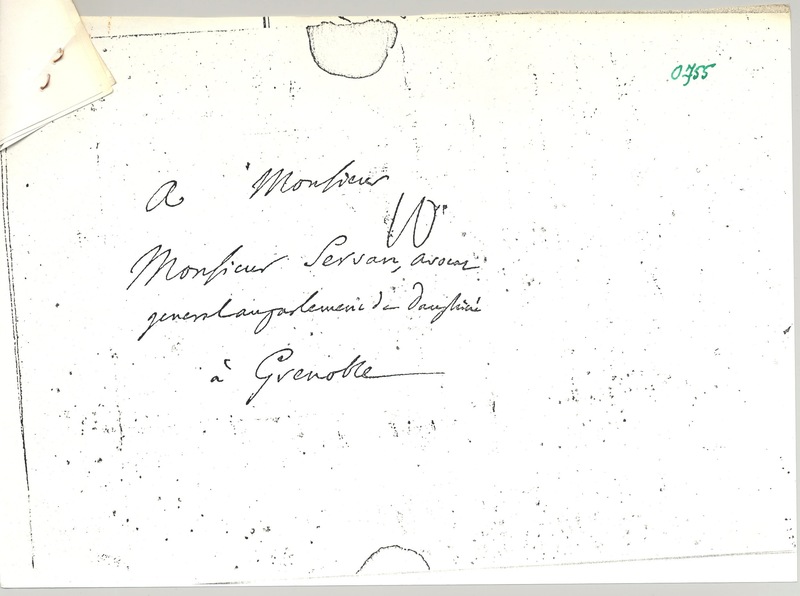 0755
A Monsieur
Monsieur Servan, avocat
general au parlement de Dauphiné
à Grenoble